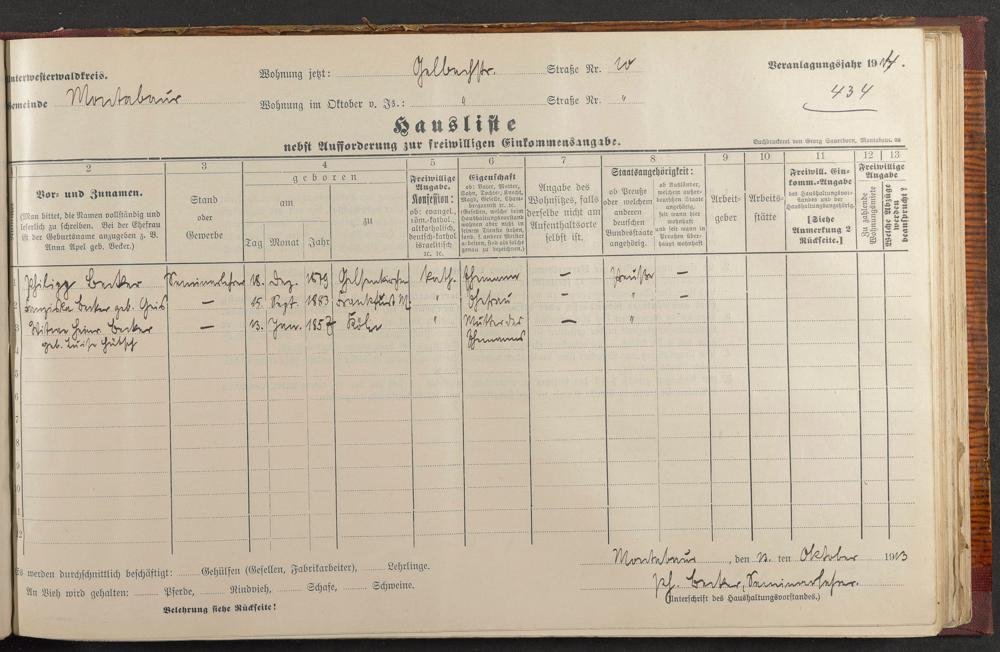 Unterwesterwaldkreis. Wohnung jetzt: Gelbachstr. Straße Nr. 20 Veranlagungsjahr 1914.
Gemeinde Montabaur Wohnung im Oktober v. Js.: " Straße Nr. " 434
Hausliste
nebst Aufforderung zur freiwilligen Einkommensangabe.
Buchdruckerei von Georg Sauerborn, Montabaur.
2 3 4 5 6 7 8 9 10 11 12 13
Vor- und Zunamen.
(Man bittet, die Namen vollständig und
leserlich zu schreiben. Bei der Ehefrau
ist der Geburtsname anzugeben z. B.
Anna Apel geb. Becker.)
Stand
oder
Gewerbe
geboren
am
zu
Tag Monat Jahr
Freiwillige
Angabe.
Konfession:
ob: evangel.,
röm.-kathol.,
altkatholisch,
deutsch-kathol.
israelitisch
ec. ec.
Eigenschaft
ob: Vater, Mutter,
Sohn, Tochter, Knecht,
Magd, Geselle, Cham-
bergarnist ec. ec.
Angabe des
Wohnsitzes, falls
derselbe nicht am
Aufenthaltsorte
selbst ist.
Staatsangehörigkeit:
ob Preuße
oder welchem
anderen
deutschen
Bundesstaate
angehörig.
ob Ausländer,
welchem außer-
deutschen Staate
angehörig,
seit wann hier
wohnhaft
und seit wann in
Preußen über-
haupt wohnhaft
Arbeit-
geber
Arbeits-
stätte
Freiwill. Ein-
komm.-Angabe
des Haushaltungsvor-
standes und der
Haushaltungsangehörig.
[Siehe
Anmerkung 2
Rückseite.]
Freiwillige
Angabe
Zu zahlende
Wohnungsmiete
Welche Abzüge
werden
beansprucht?
Philipp Becker Seminarlehrer 18. Dez. 1879 Gelsenkirchen kath. Ehemann — Preuße —
2 Franziska Becker geb. 15. Sept. 1883 Frankfurt M. " Ehefrau — " —
3 Witwe Heinr. Becker — 13. Jan. 1857 Köln " Mutter des — "
4 geb. Luise Ehemanns
5
6
7
8
9
10
11
12
Es werden durchschnittlich beschäftigt: Gehülfen (Gesellen, Fabrikarbeiter), Lehrlinge.
An Vieh wird gehalten: Pferde, Rindvieh, Schafe, Schweine.
Belehrung siehe Rückseite!
Montabaur, den 13. ten Oktober 1913
Ph. Becker, Seminarlehrer.
(Unterschrift des Haushaltungsvorstandes.)